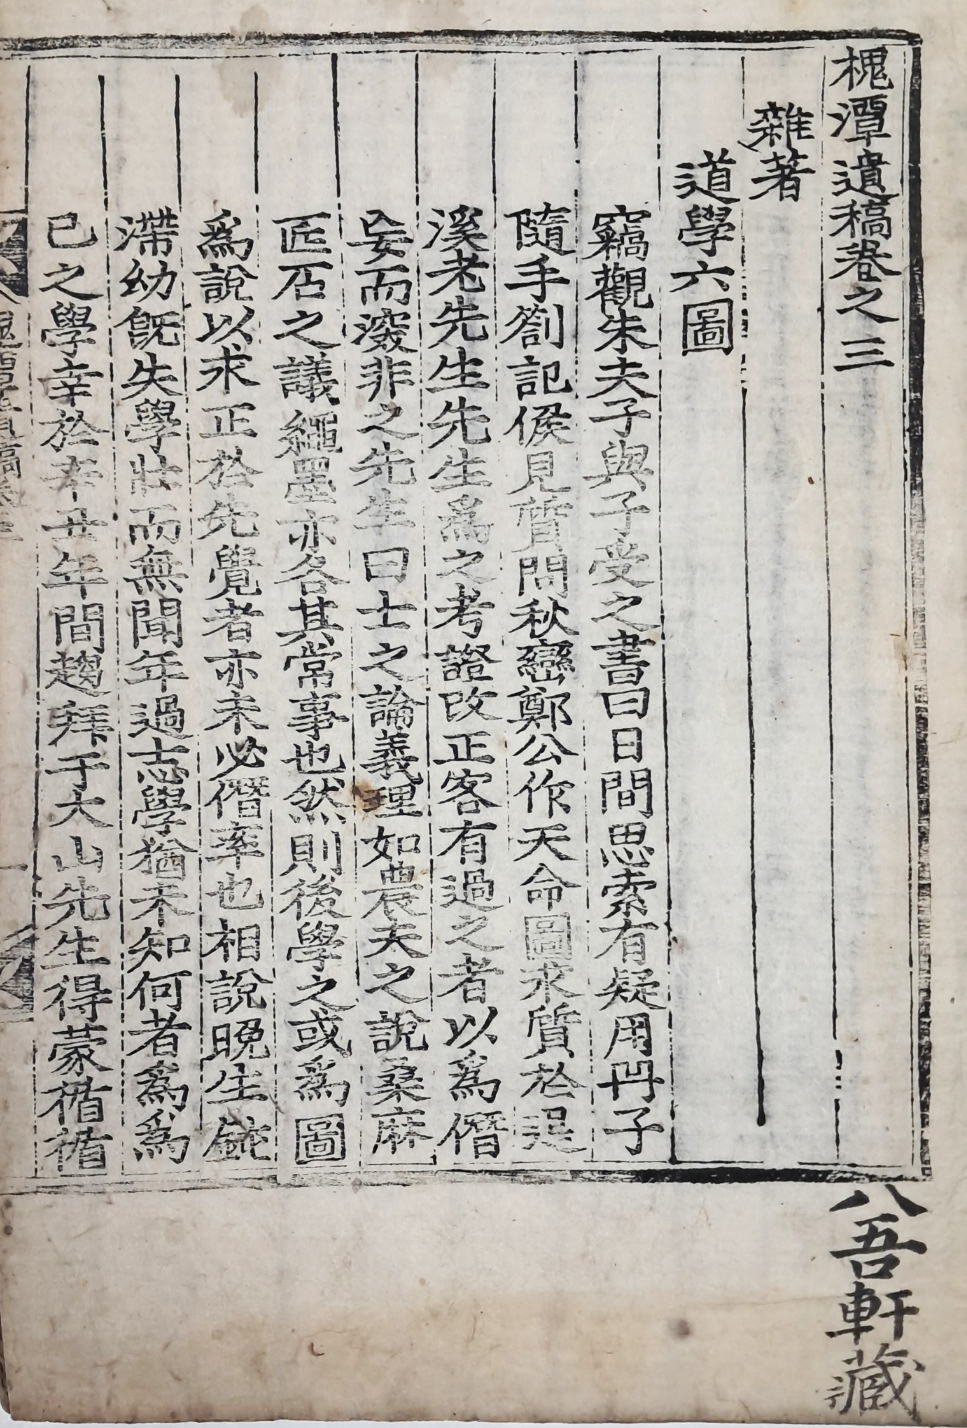 槐潭遺稿卷之三
雜著
道學六圖
竊觀朱夫子與子受之書曰日間思索有疑用冊子
隨手劄記候見質問秋巒鄭公作天命圖求質於退
溪老先生先生爲之考證改正客有過之者以爲僭
妄而深非之先生曰士之論義理如農夫之說桑麻
匠石之議繩墨亦各其常事也然則後學之或爲圖
爲說以求正於先覺者亦未必僭率也相說晩生鈍
滯幼旣失學壯而無聞年過志學猶未知何者爲爲
己之學幸於辛丑年間趨拜于大山先生得蒙循循
槐潭遺稿卷三
一
八吾軒藏